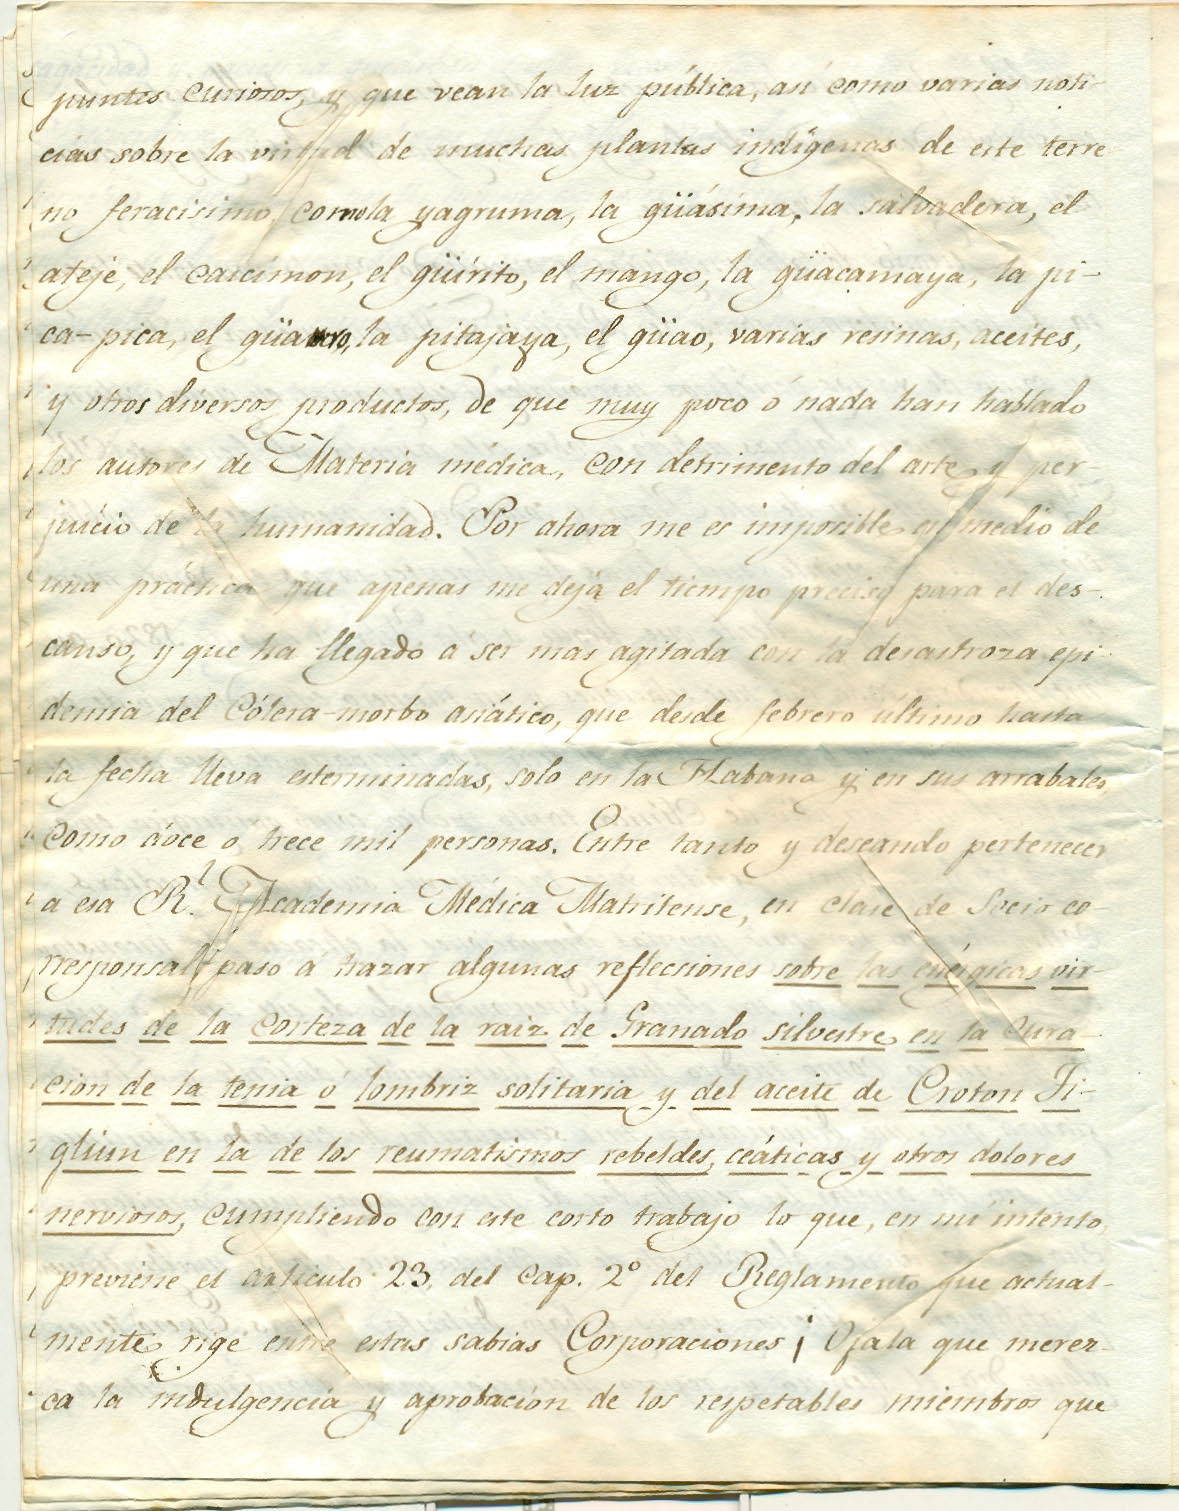 puntes curiosos, y que vean la luz pública, asi como varias noti-
cias sobre la virtud de muchas plantas indígenas de este terre
no feracisimo, como la yagruma, la güásima, la salvadera, el
ateje, el caicimon, el güirito, el mango, la güacamaya, la pi-
ca-pica, el la pitajaya, el güao, varias resinas, aceites,
y otros diversos productos, de que muy poco ó nada han hablado
los autores de Materia médica, con detrimento del arte y per-
juicio de la humanidad. Por ahora me es imposible en medio de
una práctica que apenas me deja el tiempo preciso para el des-
canso, y que ha llegado á ser mas agitada con la desastroza epi
demia del Cólera-morbo asiático, que desde febrero último hasta
la fecha lleva esterminadas, solo en la Habana y en sus arrabales
como doce ó trece mil personas. Entre tanto y deseando pertenecer
a esa R.l Academia Médica Matritense, en clase de Socio co-
rresponsal, paso á trazar algunas reflecsiones sobre las enérgicas vir-
tudes de la corteza de la raiz de Granado silvestre en la cura-
cion de la tenia ó lombriz solitaria y del aceite de Croton Ti-
glium en la de los reumatismos rebeldes, ceáticas y otros dolores
nerviosos, cumpliendo con este corto trabajo lo que, en mi intento,
previene el articulo 23, del cap. 2º del Reglamento que actual-
mente rige entre estas sabias Corporaciones ¡ Ojala que merez-
ca la indulgencia y aprobación de los respetables miembros que